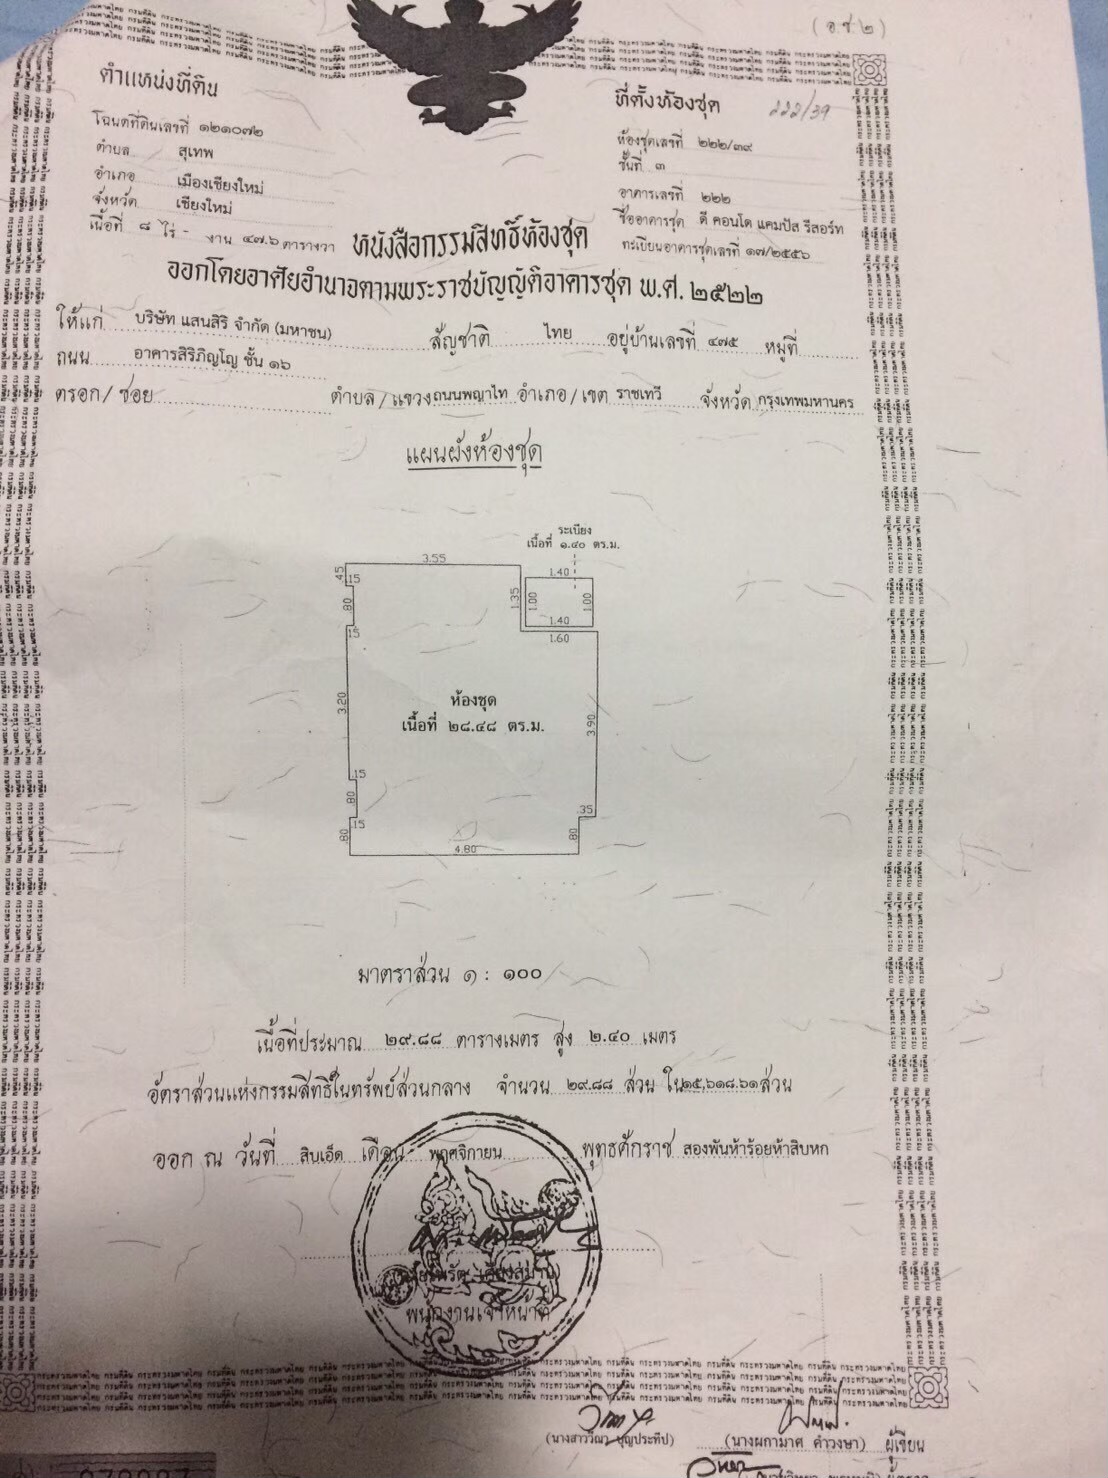 (อ.ช.๒)
ตำแหน่งที่ดิน
โฉนดที่ดินเลขที่ ๑๒๑๐๗๒
ตำบล สุเทพ
อำเภอ เมืองเชียงใหม่
จังหวัด เชียงใหม่
เนื้อที่ ๘ ไร่ - งาน ๔๗.๖ ตารางวา
ที่ตั้งห้องชุด 222/39
ห้องชุดเลขที่ ๒๒๒/๓๙
ชั้นที่ ๓
อาคารเลขที่ ๒๒๒
ชื่ออาคารชุด ดี คอนโด แคมปัส รีสอร์ท
ทะเบียนอาคารชุดเลขที่ ๑๗/๒๕๕๖
หนังสือกรรมสิทธิ์ห้องชุด
ออกโดยอาศัยอำนาจตามพระราชบัญญัติอาคารชุด พ.ศ. ๒๕๒๒
ให้แก่ บริษัท แสนสิริ จำกัด (มหาชน) สัญชาติ ไทย อยู่บ้านเลขที่ ๔๗๕ หมู่ที่
ถนน อาคารสิริภิญโญ ชั้น ๑๖
ตรอก/ซอย ตำบล/แขวง ถนนพญาไท อำเภอ/เขต ราชเทวี จังหวัด กรุงเทพมหานคร
แผนผังห้องชุด
ระเบียง
เนื้อที่ ๑.๔๐ ตร.ม.
3.55
1.40
.45
.15
.80
1.35
1.00
1.00
1.40
.15
1.60
3.20
ห้องชุด
เนื้อที่ ๒๘.๔๘ ตร.ม.
3.90
.15
.80
.15
.35
.80
.80
4.80
มาตราส่วน ๑ : ๑๐๐
เนื้อที่ประมาณ ๒๙.๘๘ ตารางเมตร สูง ๒.๔๐ เมตร
อัตราส่วนแห่งกรรมสิทธิ์ในทรัพย์ส่วนกลาง จำนวน ๒๙.๘๘ ส่วน ใน ๑๕,๖๑๘.๖๑ ส่วน
ออก ณ วันที่ สิบเอ็ด เดือน พฤศจิกายน พุทธศักราช สองพันห้าร้อยห้าสิบหก
พนักงานเจ้าหน้าที่
(นางสาววีณา บุญประทีป) (นางผกามาศ คำวงษา) ผู้เขียน